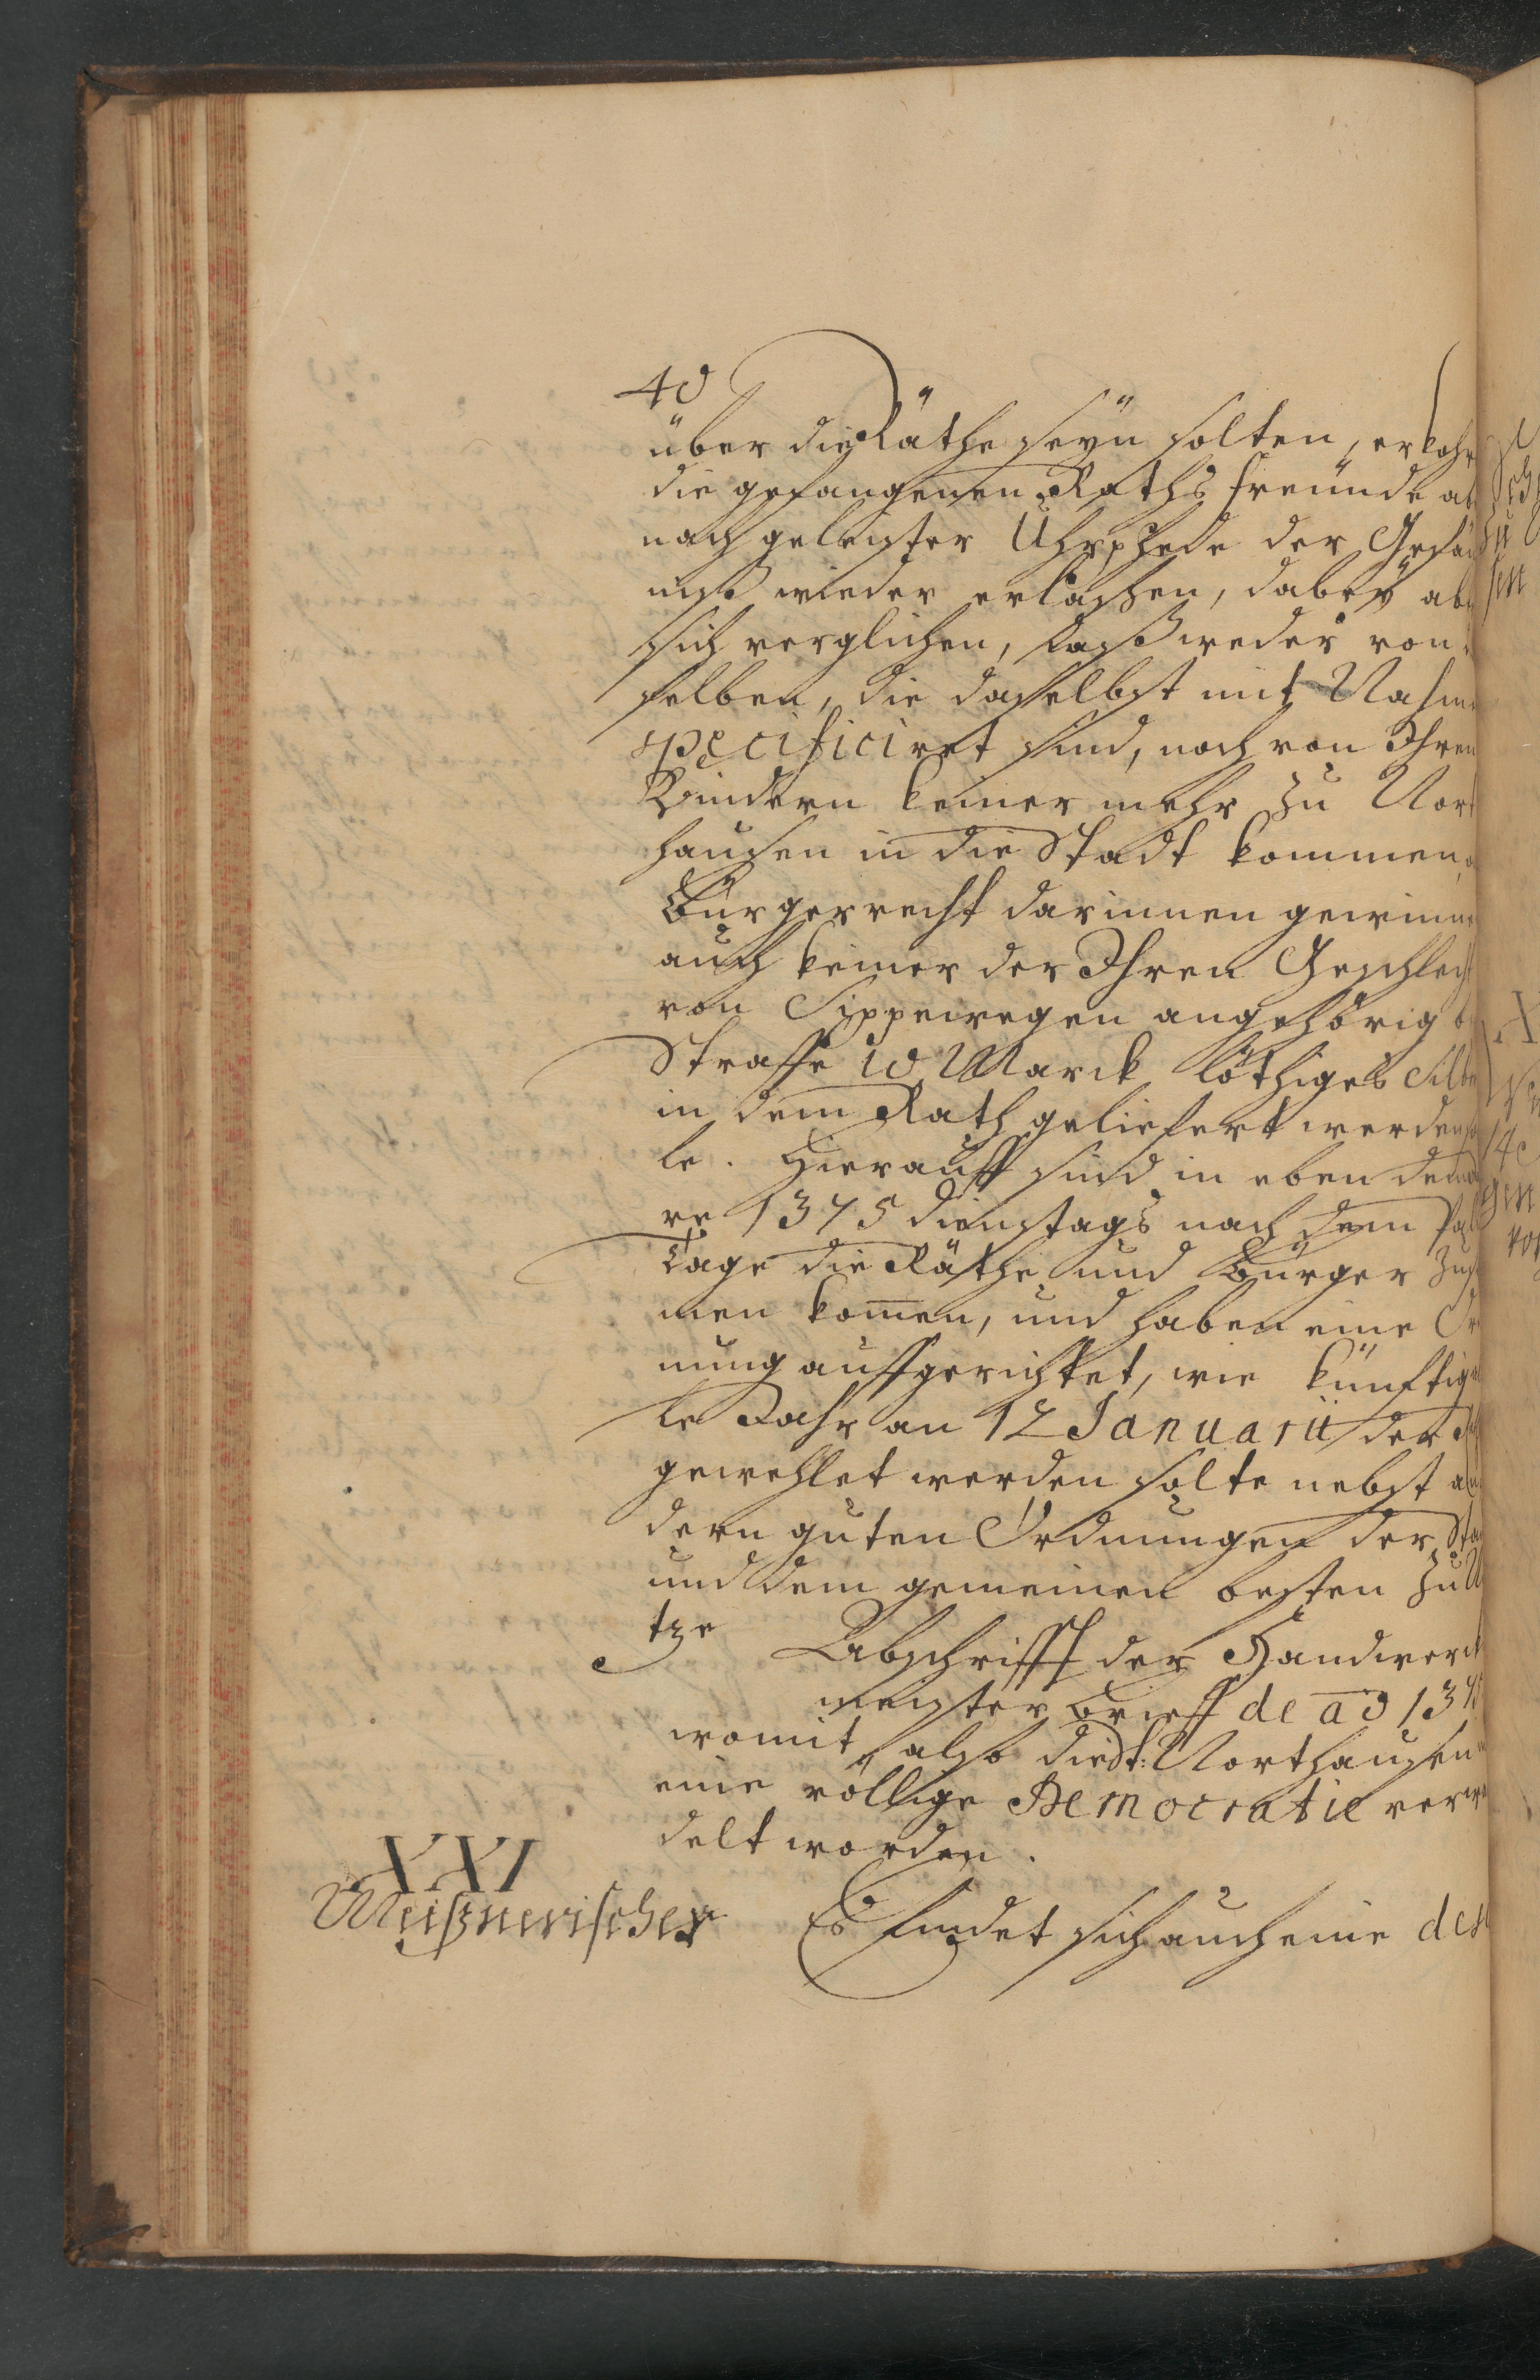 40
über die Räthe seyn solten, erkohr
die gefangenen Raths freunde ab
nach geleister Uhrphede der Gefän
niß wieder erlaßen, dabey abe
sich verglichen, daß weder von
selben, die daselbst mit Nahme
specificiret sind, noch von Ihren
Kindern keiner mehr zu Nort
hausen in die Stadt kommen,
Bürgerrecht darinnen gewinne
auch keiner der Ihren Geschlech
von Sippewegen angehörig b
Straffe 10 Marck löthiges Silbe
in dem Rath geliefert werden so
le. Hierauff sind in eben dem
re 1375 dienstags nach dem Pal
tage die Räthe und Bürger zus
men kom̅en, und haben eine Or
nung auffgerichtet, wie künftig
le Jahr an 12 Januarii der
gewehlet werden solte nebst an
dern guten Ordnungen der Sta
und dem gemeinen besten zu
tze Abschrifft der Handwerck
meister Brieff de ao 1375
womit also die St: Northausen
eine völlige Democratie verwa
delt worden.
XXI
Meißnerischer Es findet sich auch eine des